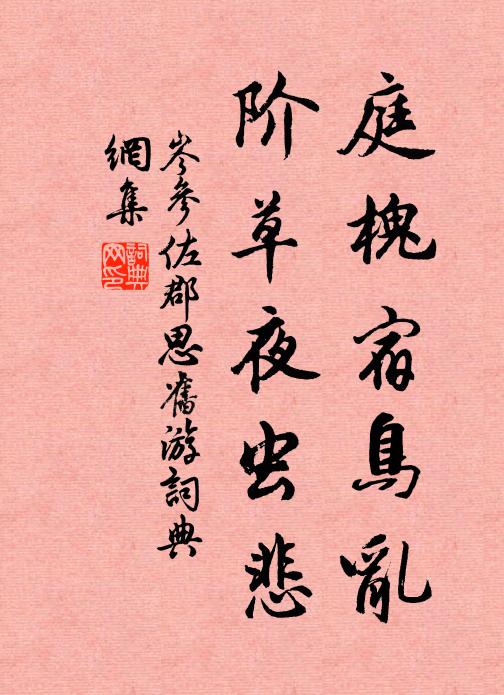 庭槐宿鳥亂
阶草夜虫悲
岑參佐郡思舊游詞典
網集
詞典
网印